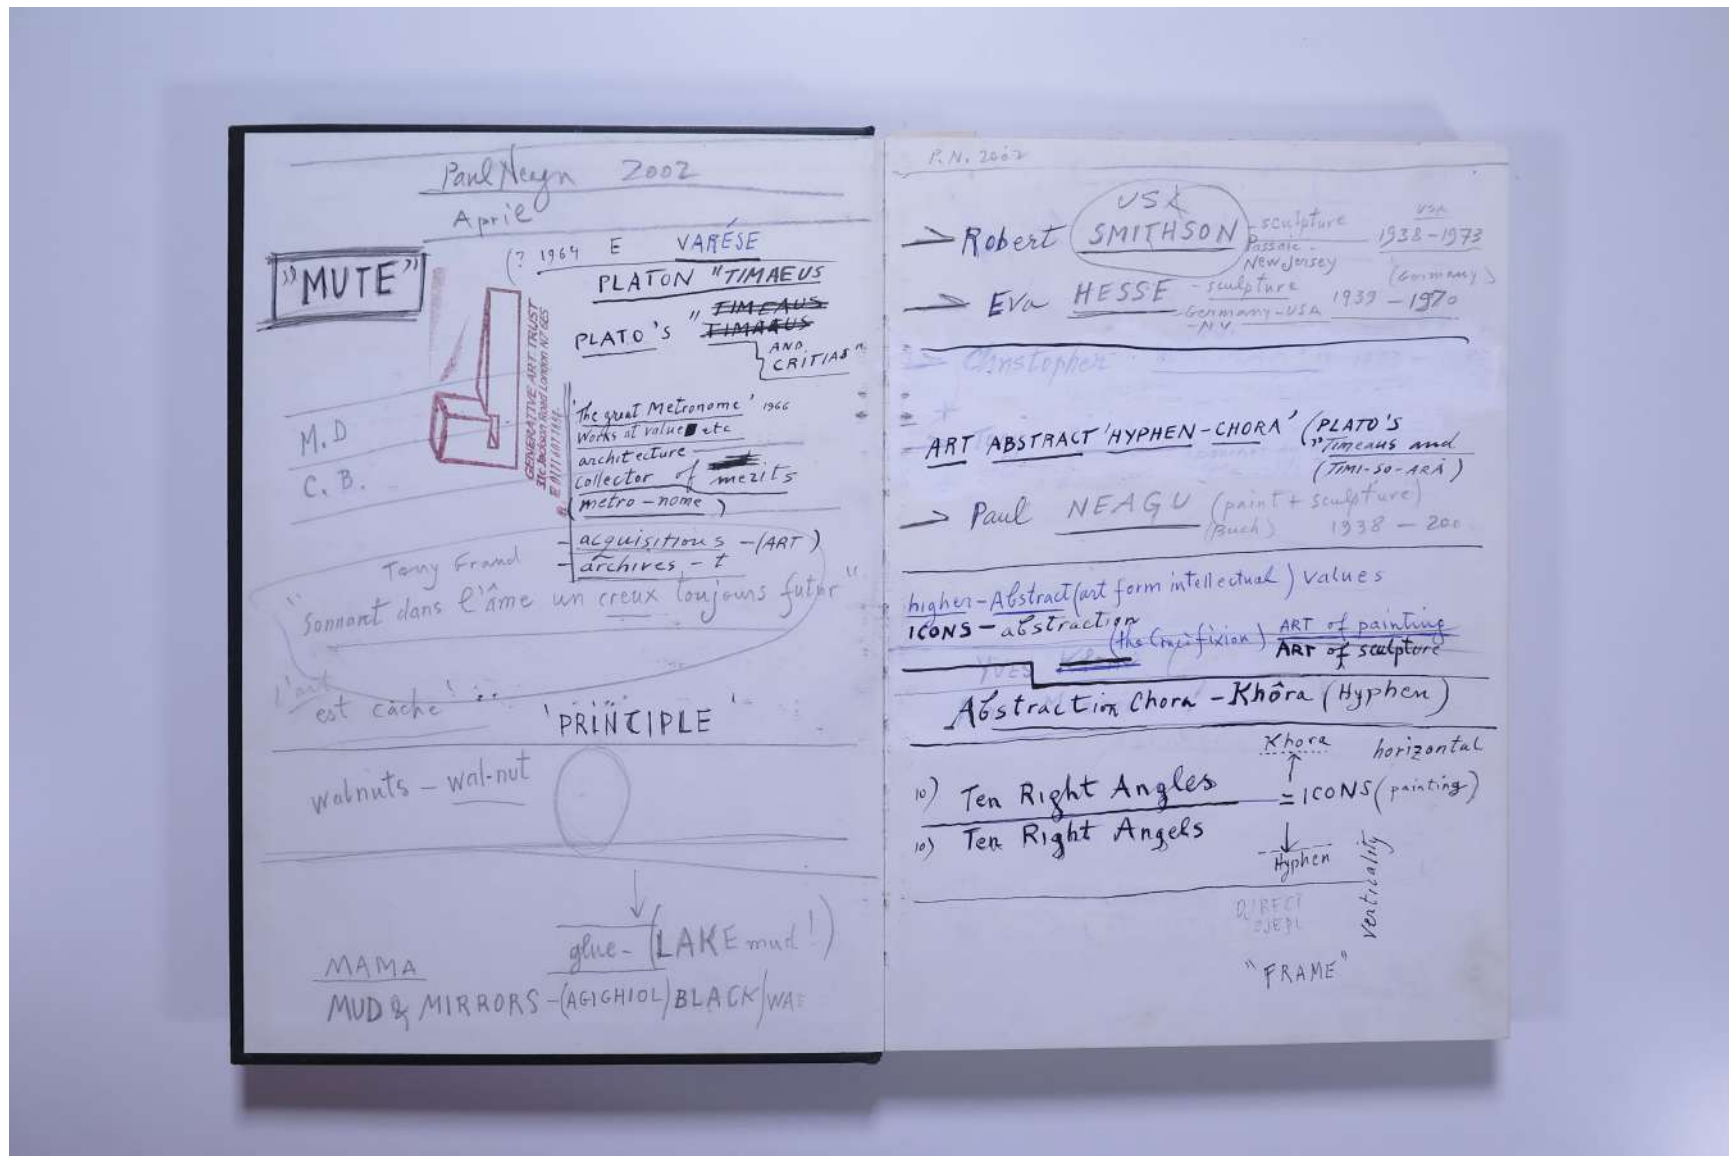 Paul Neagu 2002
April
"MUTE"
(? 1964 E VARÉSE
PLATON "TIMAEUS
PLATO'S "TIMEAUS
TIMAEUS
AND
CRITIAS"
GENERATIVE ART TRUST
31c Jackson Road London N7 6ES
'The great Metronome' 1966
Works at value etc
architecture
collector of merits
(metro-nome)
- acquisitions - (ART)
- archives - t
M.D
C.B.
Tony Grand
"Sonnant dans l'âme un creux toujours futur"
L'art
est câché!
'PRINCIPLE'
walnuts - wal-nut
glue - (LAKE mud!)
MAMA
MUD & MIRRORS - (AGIGHIOL) BLACK/WA
P.N. 2002
USA
Robert SMITHSON - sculpture USA
Passaic - 1938-1973
New Jersey
(Germany)
Eva HESSE - sculpture 1939-1970
Germany-USA
- N.Y.
Christopher
ART ABSTRACT 'HYPHEN-CHORA' (PLATO'S
"Timeaus and
(TIMI-SO-ARA)
Paul NEAGU (paint + sculpture)
(Buch) 1938 - 200
higher-Abstract (art form intellectual) values
ICONS - abstraction
(the Crucifixion) ART of painting
ART of sculpture
YVES Klein
Abstraction Chora - Khôra (Hyphen)
Khora horizontal
10) Ten Right Angles = ICONS (painting)
10) Ten Right Angels
Hyphen
verticality
"FRAME"